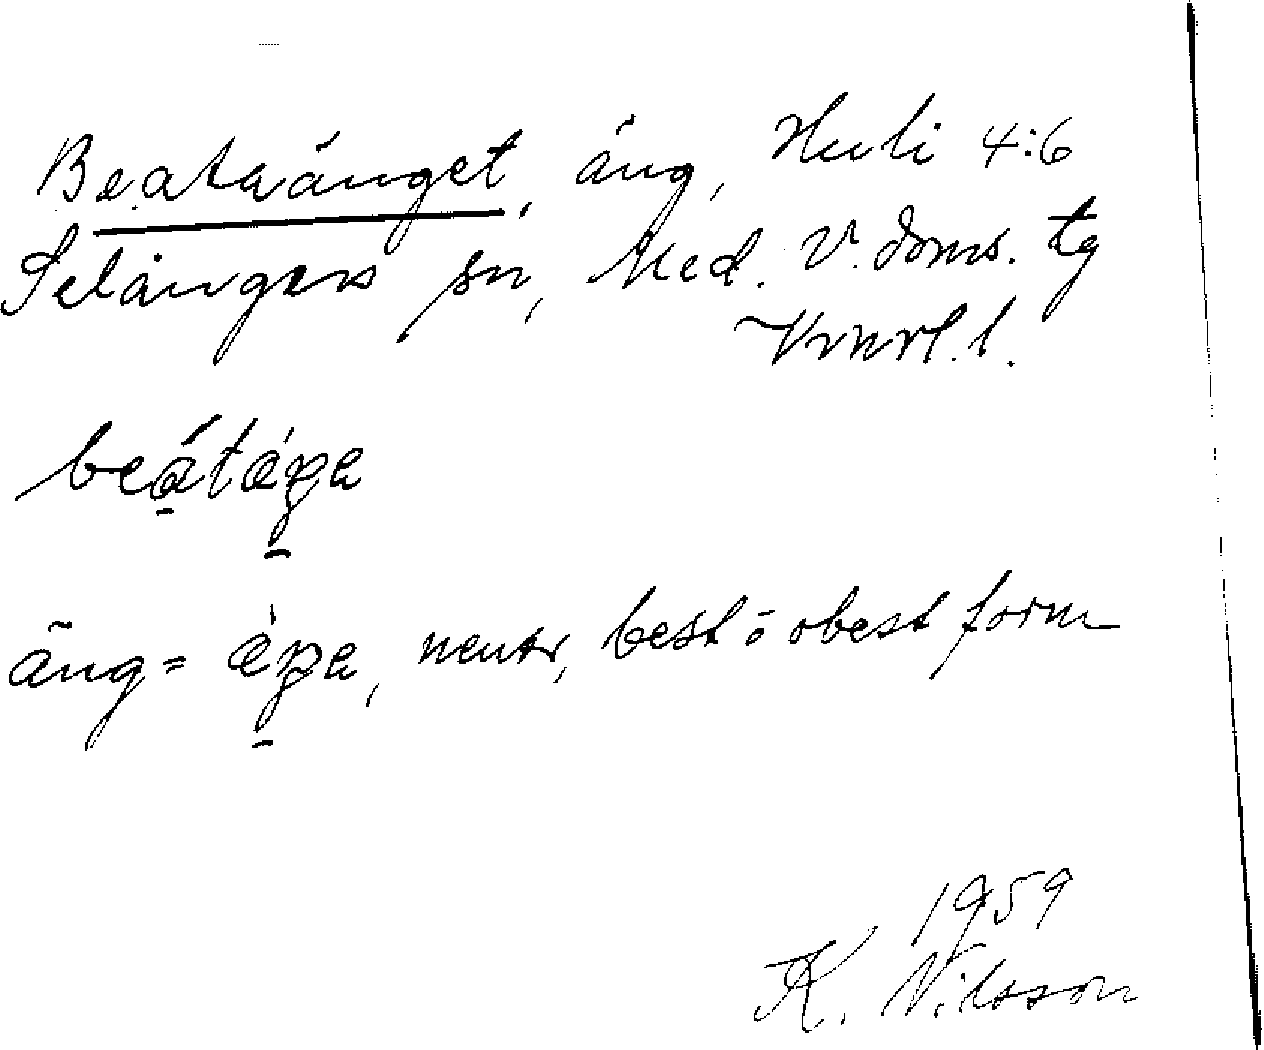 Beataänget, äng, Huli 4:6
Selångers sn, Med. V. doms. tg
beátáŋa
äng = äŋa, neutr, best o obest form
1959
K. Nilsson